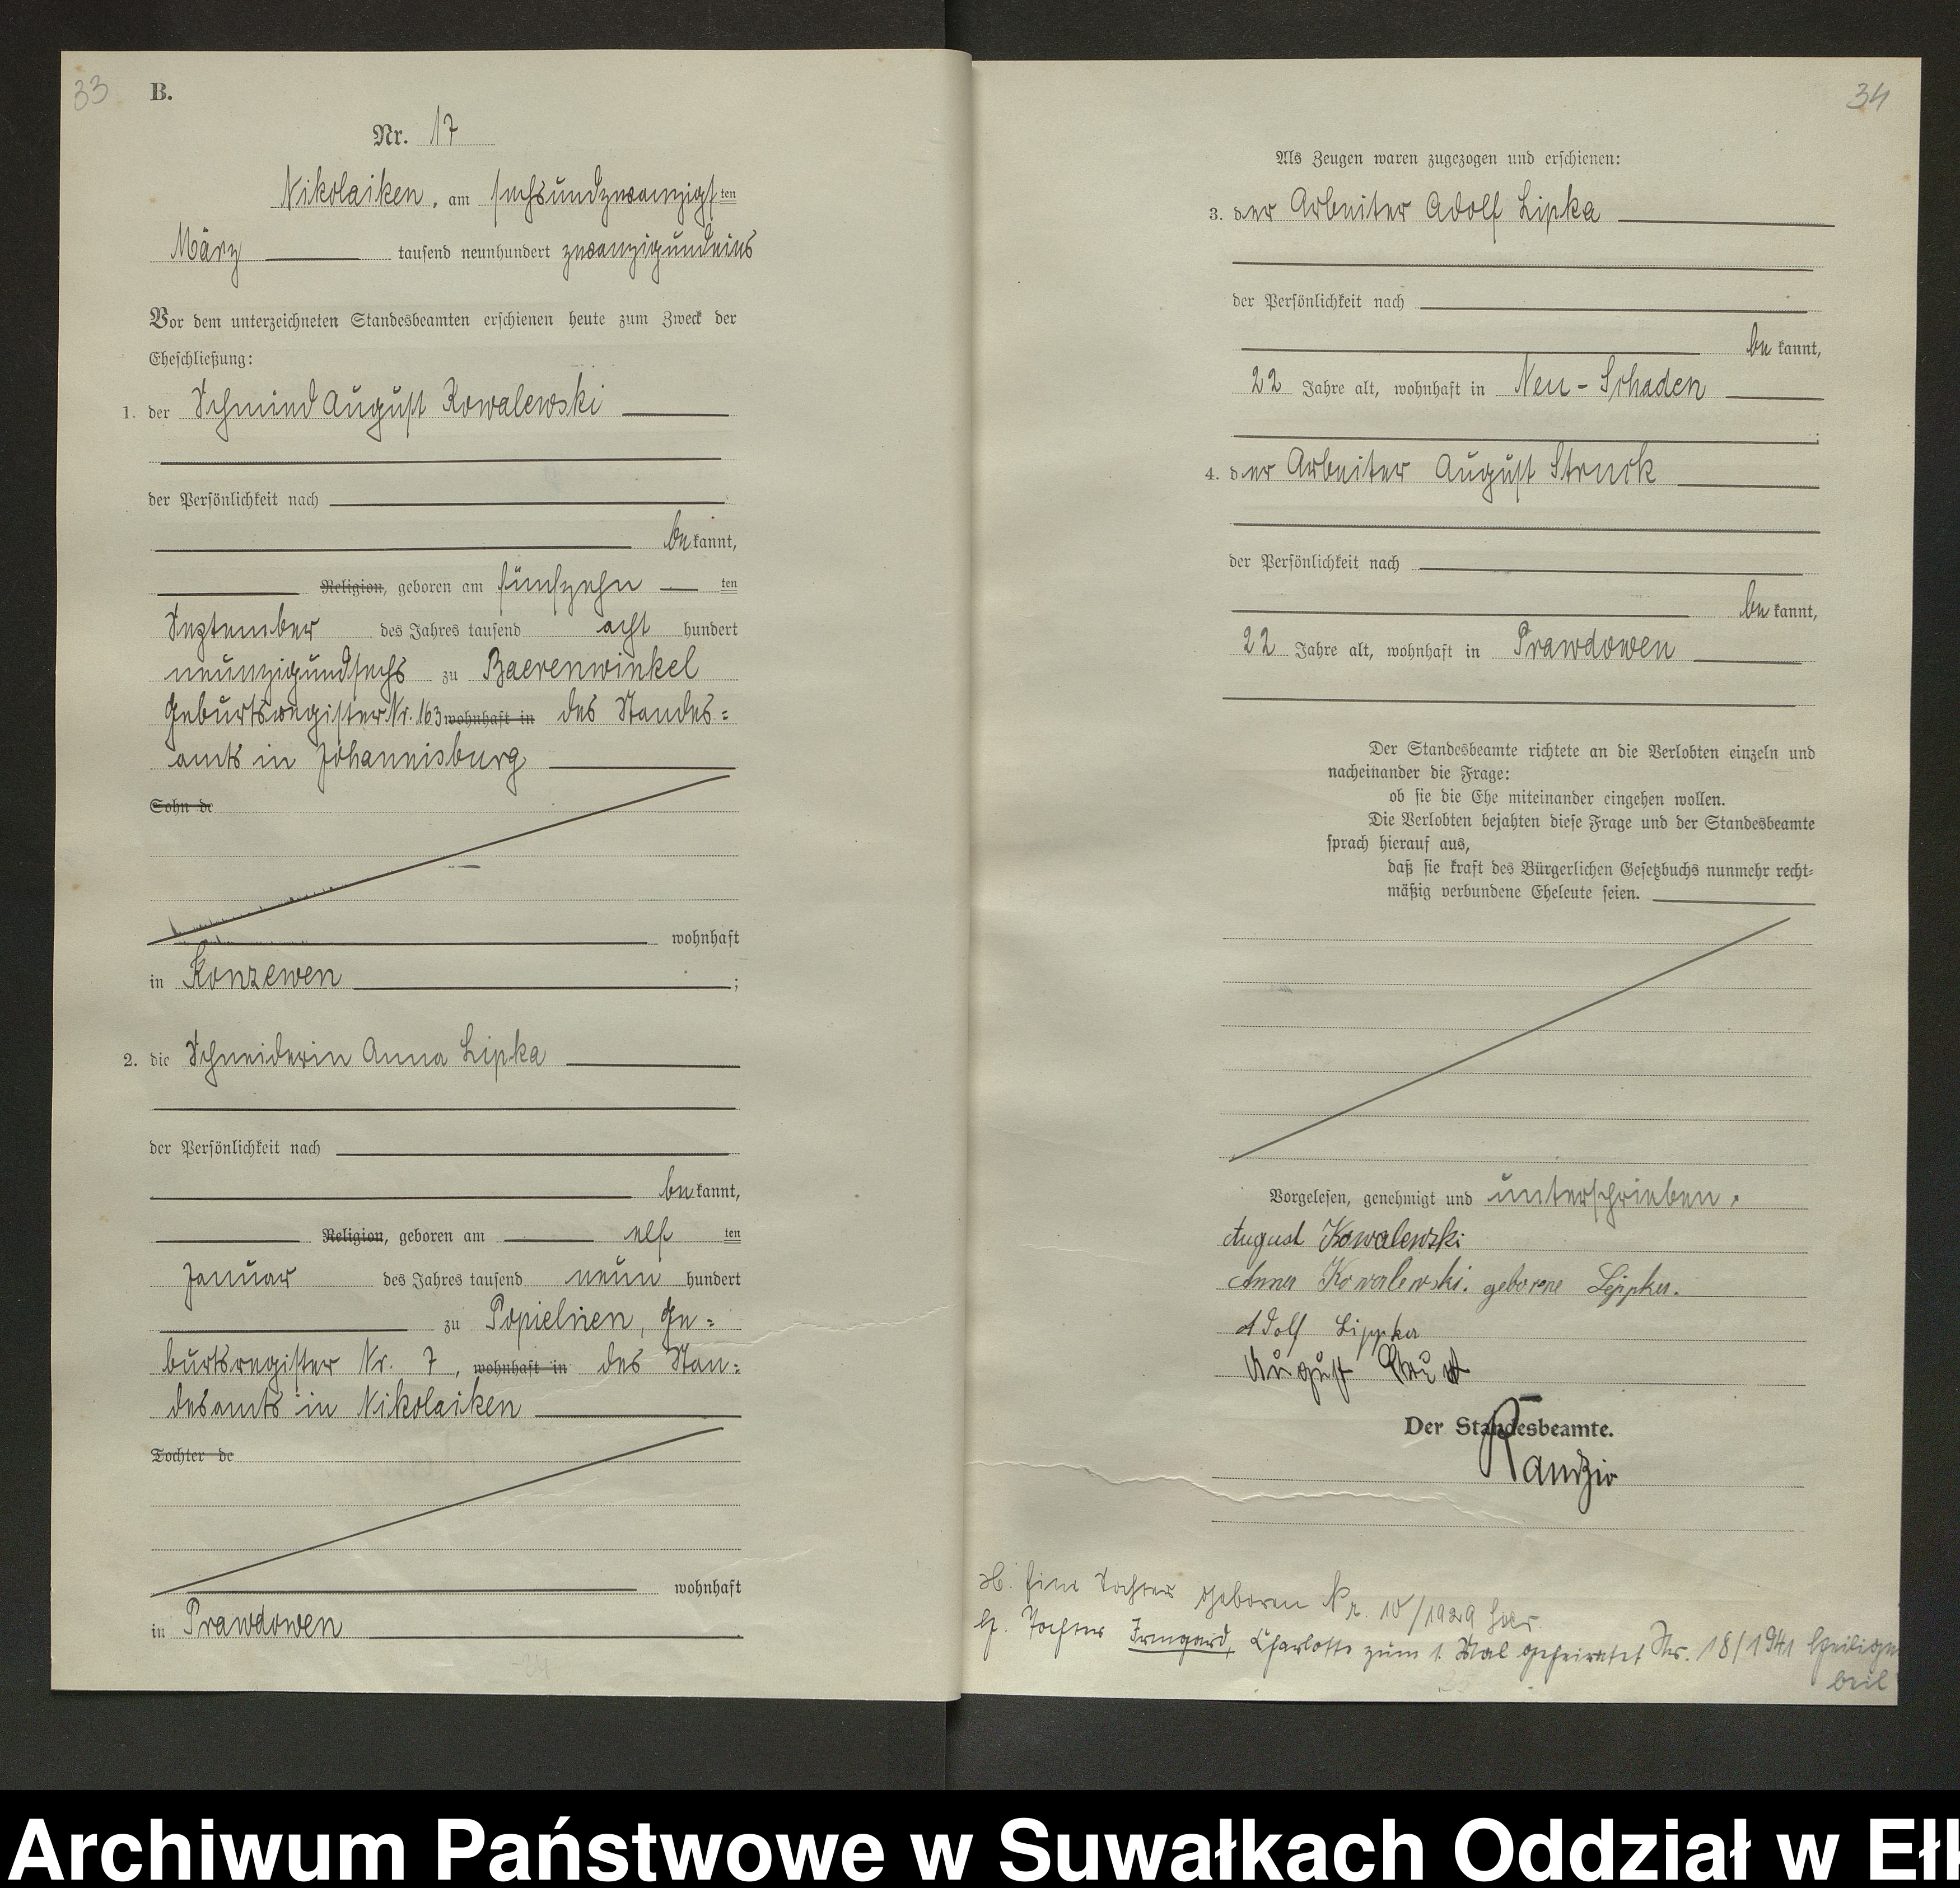 33
B.
Nr. 17
Nikolaiken, am sechsundzwanzigsten
März tausend neunhundert zwanzigundeins
Vor dem unterzeichneten Standesbeamten erschienen heute zum Zweck der
Eheschließung:
1. der Schmied August Kowalewski
der Persönlichkeit nach
bekannt,
Religion, geboren am fünfzehn ten
September des Jahres tausend acht hundert
neunzigundsechs zu Baerenwinkel
Geburtsregister Nr. 163 wohnhaft in des Standes=
amts in Johannisburg
Sohn de
wohnhaft
in Konzewen ;
2. die Schneiderin Anna Lipka
der Persönlichkeit nach
bekannt,
Religion, geboren am elf ten
Januar des Jahres tausend neun hundert
zu Popielnen, Ge=
burtsregister Nr. 7, wohnhaft in des Stan=
desamts in Nikolaiken
Tochter de
wohnhaft
in Prawdowen
34
Als Zeugen waren zugezogen und erschienen:
3. der Arbeiter Adolf Lipka
der Persönlichkeit nach
bekannt,
22 Jahre alt, wohnhaft in Neu-Schaden
4. der Arbeiter August Struck
der Persönlichkeit nach
bekannt,
22 Jahre alt, wohnhaft in Prawdowen
Der Standesbeamte richtete an die Verlobten einzeln und
nacheinander die Frage:
ob sie die Ehe miteinander eingehen wollen.
Die Verlobten bejahten diese Frage und der Standesbeamte
sprach hierauf aus,
daß sie kraft des Bürgerlichen Gesetzbuchs nunmehr recht=
mäßig verbundene Eheleute seien.
Vorgelesen, genehmigt und unterschrieben.
August Kowalewski
Anna Kowalewski. geborene Lippka.
Adolf Lippka
August
Der Standesbeamte.
Randzio
Eine Tochter geboren Nr. 10/1929 hier.
Tochter Irmgard, Charlotte zum 1. Mal geheiratet Nr. 18/1941 Heiligen
beil
Archiwum Państwowe w Suwałkach Oddział w Ełk